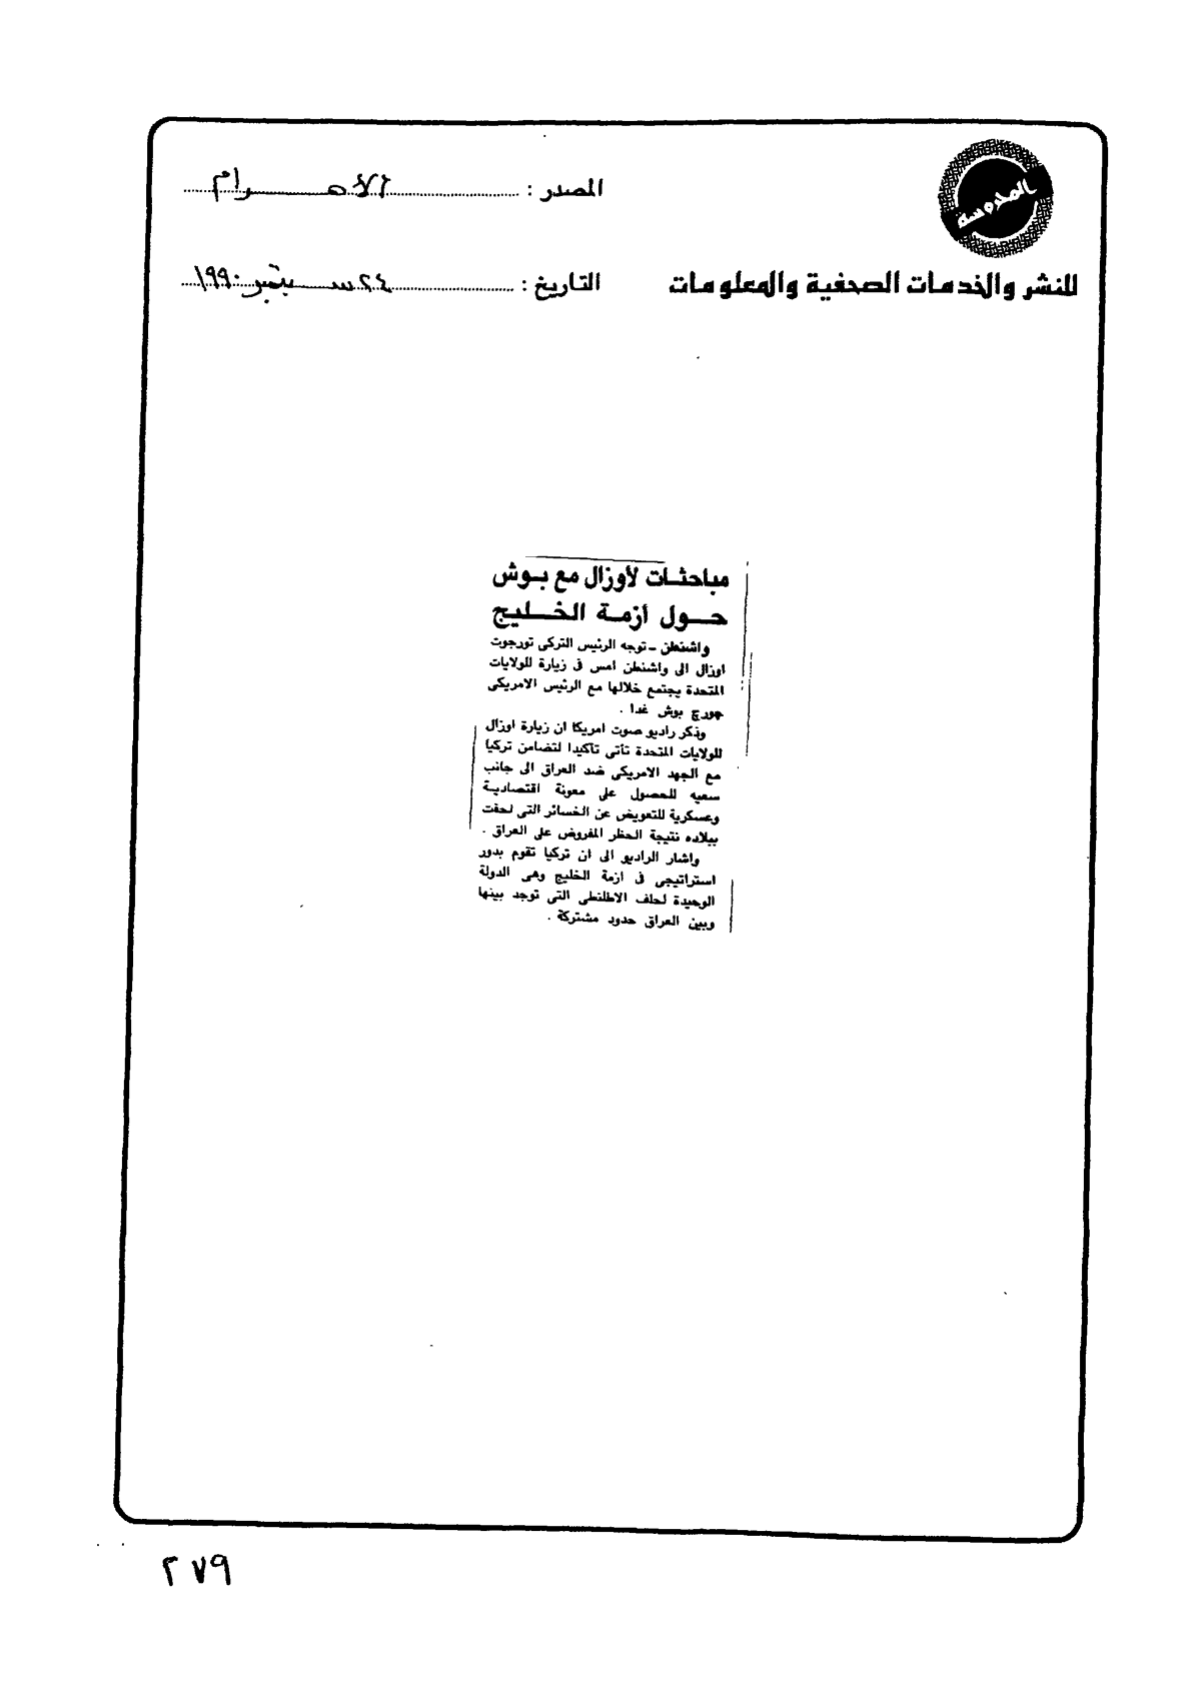 المحروسة
للنشر والخدمات الصحفية والمعلومات
المصدر : الأهـــرام
التاريخ : ٢٤ سبتمبر ١٩٩٠
مباحثـات لأوزال مع بـوش
حـــول أزمـة الخـــليج
واشنطن ــ توجه الرئيس التركى تورجوت
اوزال الى واشنطن امس فى زيارة للولايات
المتحدة يجتمع خلالها مع الرئيس الامريكى
جورج بوش غدا .
وذكر راديو صوت امريكا ان زيارة اوزال
للولايات المتحدة تأتى تأكيدا لتضامن تركيا
مع الجهد الامريكى ضد العراق الى جانب
سعيه للحصول على معونة اقتصادية
وعسكرية للتعويض عن الخسائر التى لحقت
ببلاده نتيجة الحظر المفروض على العراق .
واشار الراديو الى ان تركيا تقوم بدور
استراتيجى فى ازمة الخليج وهى الدولة
الوحيدة لحلف الاطلنطى التى توجد بينها
وبين العراق حدود مشتركة .
٢٧٩